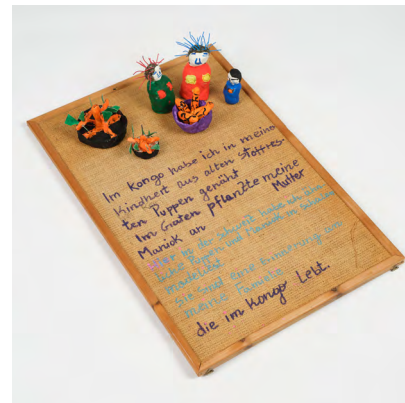 Im Kongo habe ich in meine
Kindheit aus alten Stoffres-
ten Puppen genäht
Im Graten pflanzte meine
Maniok an Mutter
Hier in der schweiz habe ich
Puppen und Maniok
sie sind eine Erinnerung an
meine Familie
die im Kongo Lebt.